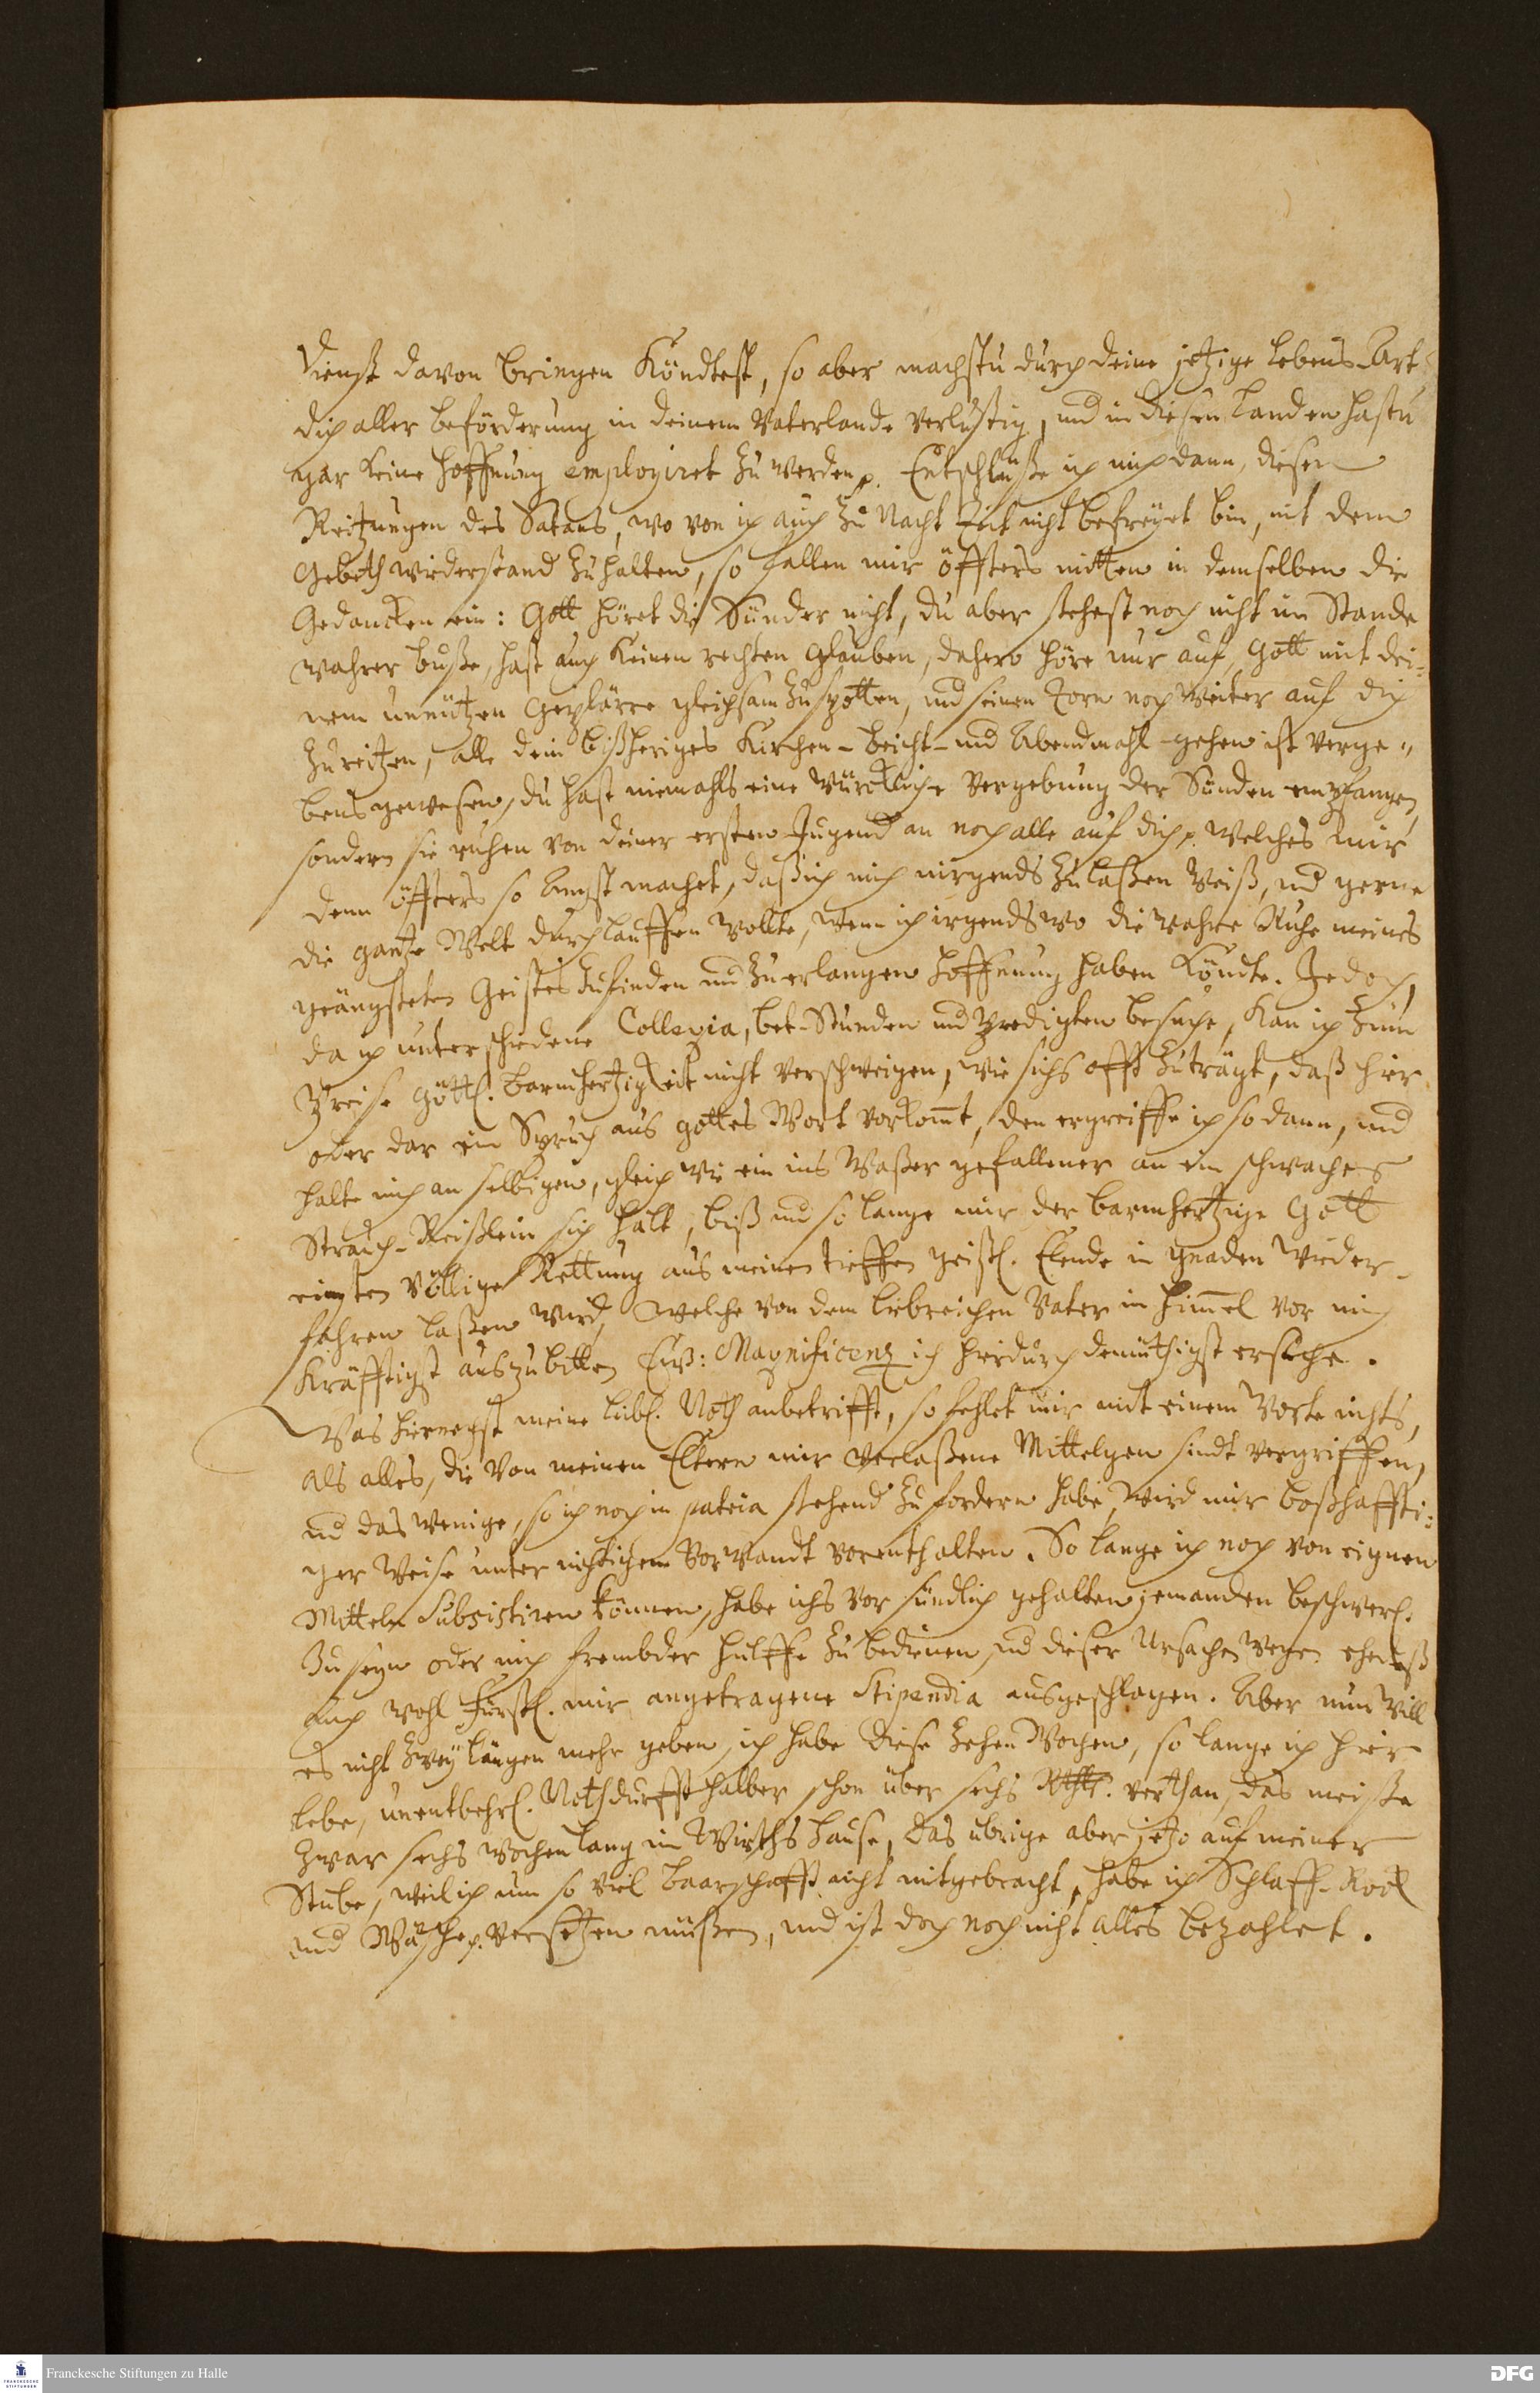 Dienst davon bringen köndtest, so aber machstu durch deine jetzige Lebens-Art
dich aller beförderung in deinem Vaterlande verlustig, und in diesen Landen hastu
gar keine hoffnung employiret zu werden p. Entschlüße ich mich dann, diesen
Reitzungen des Satans, wo von ich auch zu Nacht Zeit nicht befreyet bin, mit dem
Gebeth wiederstand zu halten, so fallen mir öffters mitten in demselben die
Gedancken ein: Gott höret die Sünder nicht, du aber stehest noch nicht im Stande
wahrer buße, hast auch keinen rechten Glauben, dahero höre nur auf, Gott mit dei-
nem unnützen Geplärre gleichsam zu spotten, und seinen Zorn noch weiter auf dich
zu reitzen, alle dein bißheriges Kirchen- beicht- und Abendmahl-gehen ist verge-
bens gewesen, du hast niemahls eine würckliche Vergebung der Sünden empfangen,
sondern sie ruhen von deiner ersten Jugend an noch alle auf dich p. welches mir
denn öffters so Angst machet, daß ich mich nirgends zu laßen weiß, und gerne
die gantze Welt durchlauffen wollte, wenn ich irgendswo die wahre Ruhe meines
geängsteten Geistes zu finden und zu erlangen hoffnung haben köndte. Jedoch,
da ich unterschiedene Collegia, bet-Stunden und Predigten besuche, kan ich zum
Preise Göttl. barmhertzigkeit nicht verschweigen, wie sichs offt zuträgt, daß hier
oder dar ein Spruch aus Gottes Wort vorkommt, den ergreiffe ich so dann, und
halte mich an selbigen, gleich wie ein ins Waßer gefallener an ein schwaches
Strauch-Reißlein sich hält, biß und so lange mir der barmhertzige Gott
völlige Rettung aus meinen tieffen geistl. Elende in gnaden wieder-
fahren laßen wird, welche von dem liebreichen Vater im Himmel vor mich
kräfftigst auszubitten Euß: Magnificenz ich hierdurch demüthigst ersuche.
Was hiernechst meine leibl. Noth anbetrifft, so fehlet mir mit einem Worte nichts,
als alles, die von meinen Eltern mir verlaßene Mittelgen sindt vergriffen,
und das wenige, so ich noch in patria stehend zu fordern habe, wird mir boßhaffti-
ger Weise unter nichtichem Vorwandt vorenthalten. So lange ich noch von eignen
Mitteln subsistiren können, habe ichs vor sündlich gehalten jemanden beschwerl.
zu seyn oder mich frembder hülffe zu bedienen, und dieser Ursachen wegen ehedeß
auch wohl Fürstl. mir angetragene Stipendia ausgeschlagen. Aber nun will
es nicht mehr geben, ich habe diese zehen Wochen, so lange ich hier
lebe, unentbehrl. Nothdurfft halber schon über sechs Rthlr. verthan, das meiste
zwar sechs Wochen lang im Wirthshause, das übrige aber jetzo auf meiner
Stube, weil ich nun so viel baarschafft nicht mitgebracht, habe ich Schlaff-Rock
und Wäsche p. versetzen müßen, und ist doch noch nicht alles bezahlet.
Franckesche Stiftungen zu Halle
DFG